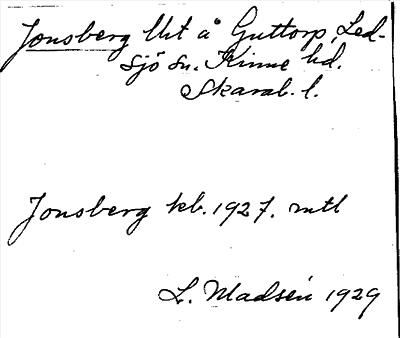 Jonsberg llt å Guttorp, Led-
sjö sn. Kinne hd.
Skarab. l.
Jonsberg kb. 1927. mtl
L. Madsén 1929